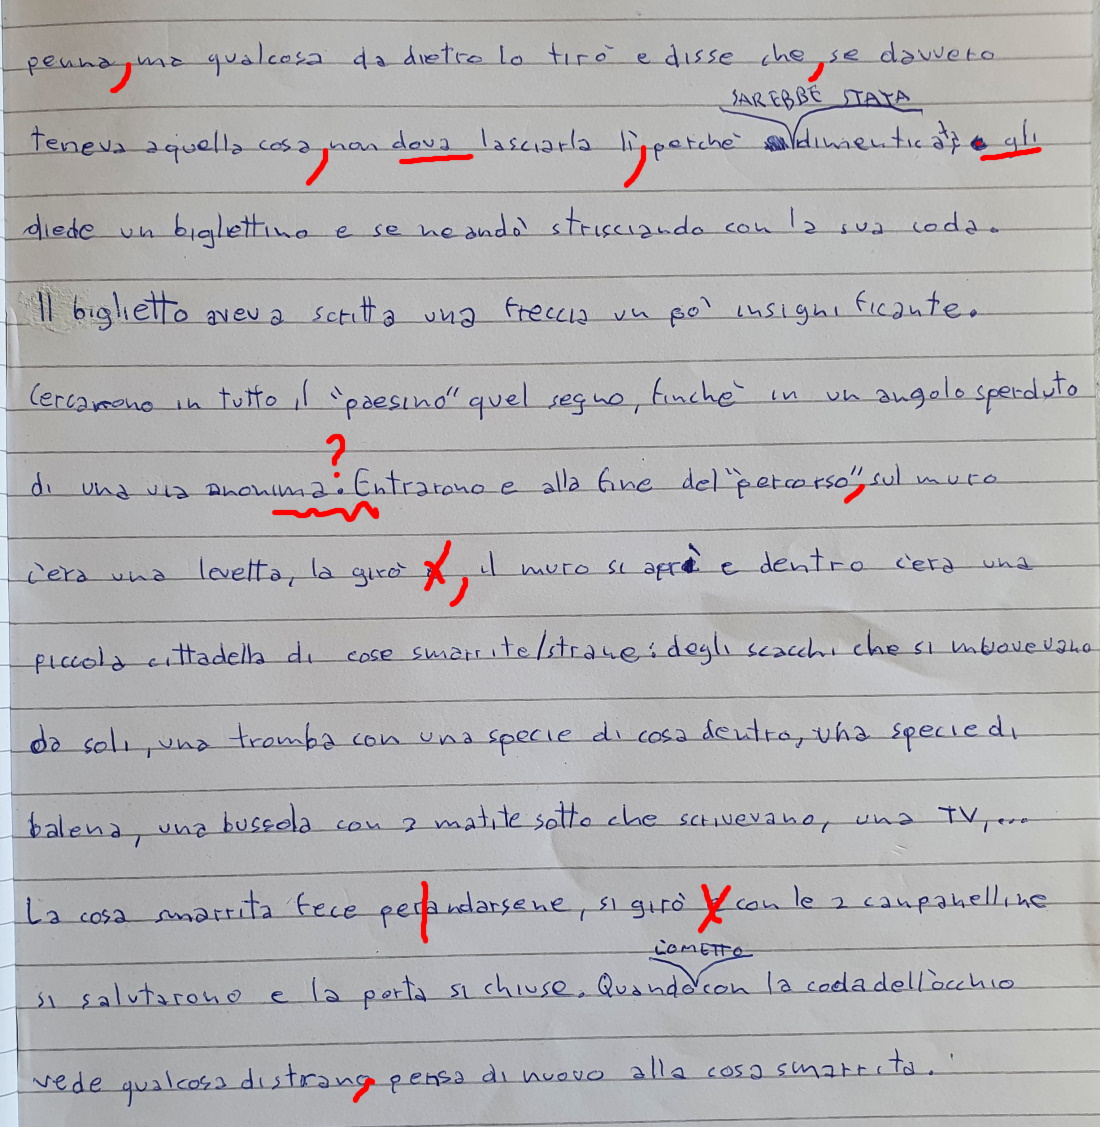 penna, ma qualcosa da dietro lo tirò e disse che, se davvero
SAREBBE STATA
teneva a quella cosa, non dova lasciarla lì, perchè dimenticata, e gli
diede un bigliettino e se ne andò strisciando con la sua coda.
Il biglietto aveva scritta una freccia un pò insignificante.
Cercarono in tutto il "paesino" quel segno, finchè in un angolo sperduto
?
di una via anonima. Entrarono e alla fine del "percorso", sul muro
c'era una levetta, la girò, il muro si aprì e dentro c'era una
piccola cittadella di cose smarrite/strane: degli scacchi che si muovevano
da soli, una tromba con una specie di cosa dentro, una specie di
balena, una bussola con 2 matite sotto che scrivevano, una TV,...
La cosa smarrita fece per andarsene, si girò con le 2 campanelline
LOMETTO
si salutarono e la porta si chiuse. Quando con la coda dell'occhio
vede qualcosa di strano, pensa di nuovo alla cosa smarrita.